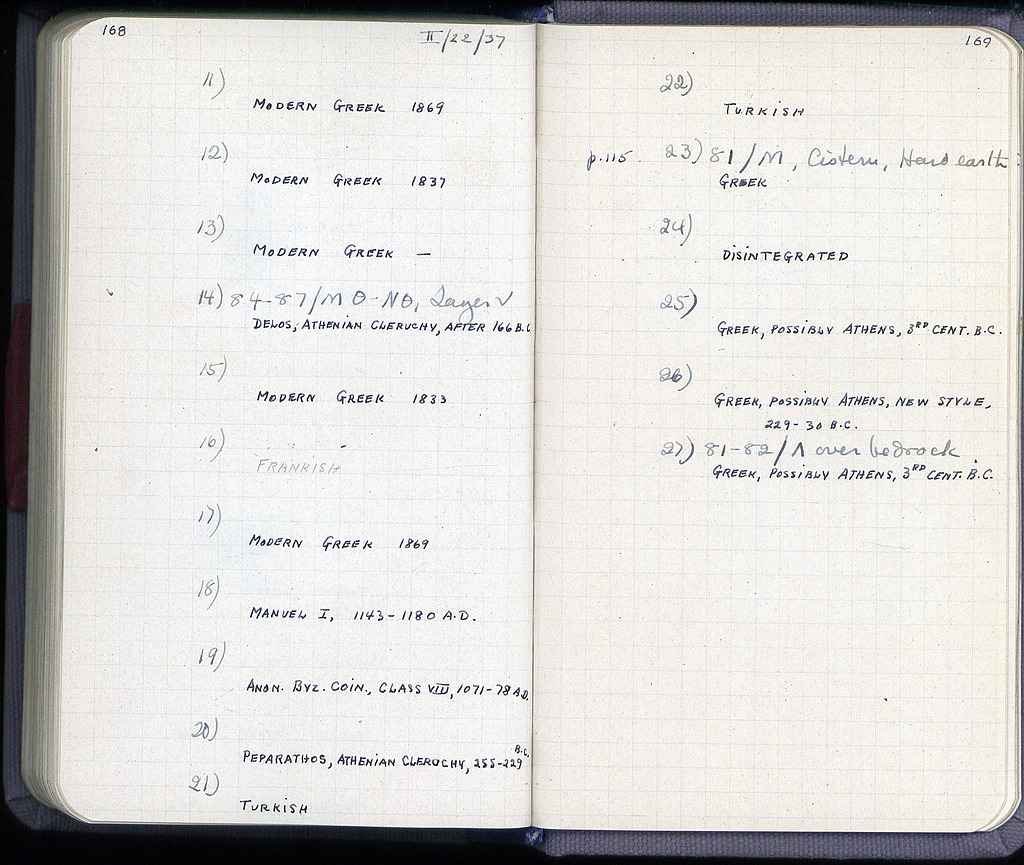 168
II/22/37
11)
MODERN GREEK 1869
12)
MODERN GREEK 1837
13)
MODERN GREEK —
14) 84-87/ΜΘ-ΝΘ, Layer V
DELOS, ATHENIAN CLERUCHY, AFTER 166 B.C
15)
MODERN GREEK 1833
16)
FRANKISH
17)
MODERN GREEK 1869
18)
MANUEL I, 1143-1180 A.D.
19)
ANON. BYZ. COIN., CLASS VIII, 1071-78 A.D.
20)
PEPARATHOS, ATHENIAN CLERUCHY, 255-229 B.C.
21)
TURKISH
169
22)
TURKISH
p.115. 23) 81/Μ, Cistern, Hard earth
GREEK
24)
DISINTEGRATED
25)
GREEK, POSSIBLY ATHENS, 3RD CENT. B.C.
26)
GREEK, POSSIBLY ATHENS, NEW STYLE,
229-30 B.C.
27) 81-82/Λ over bedrock
GREEK, POSSIBLY ATHENS, 3RD CENT. B.C.